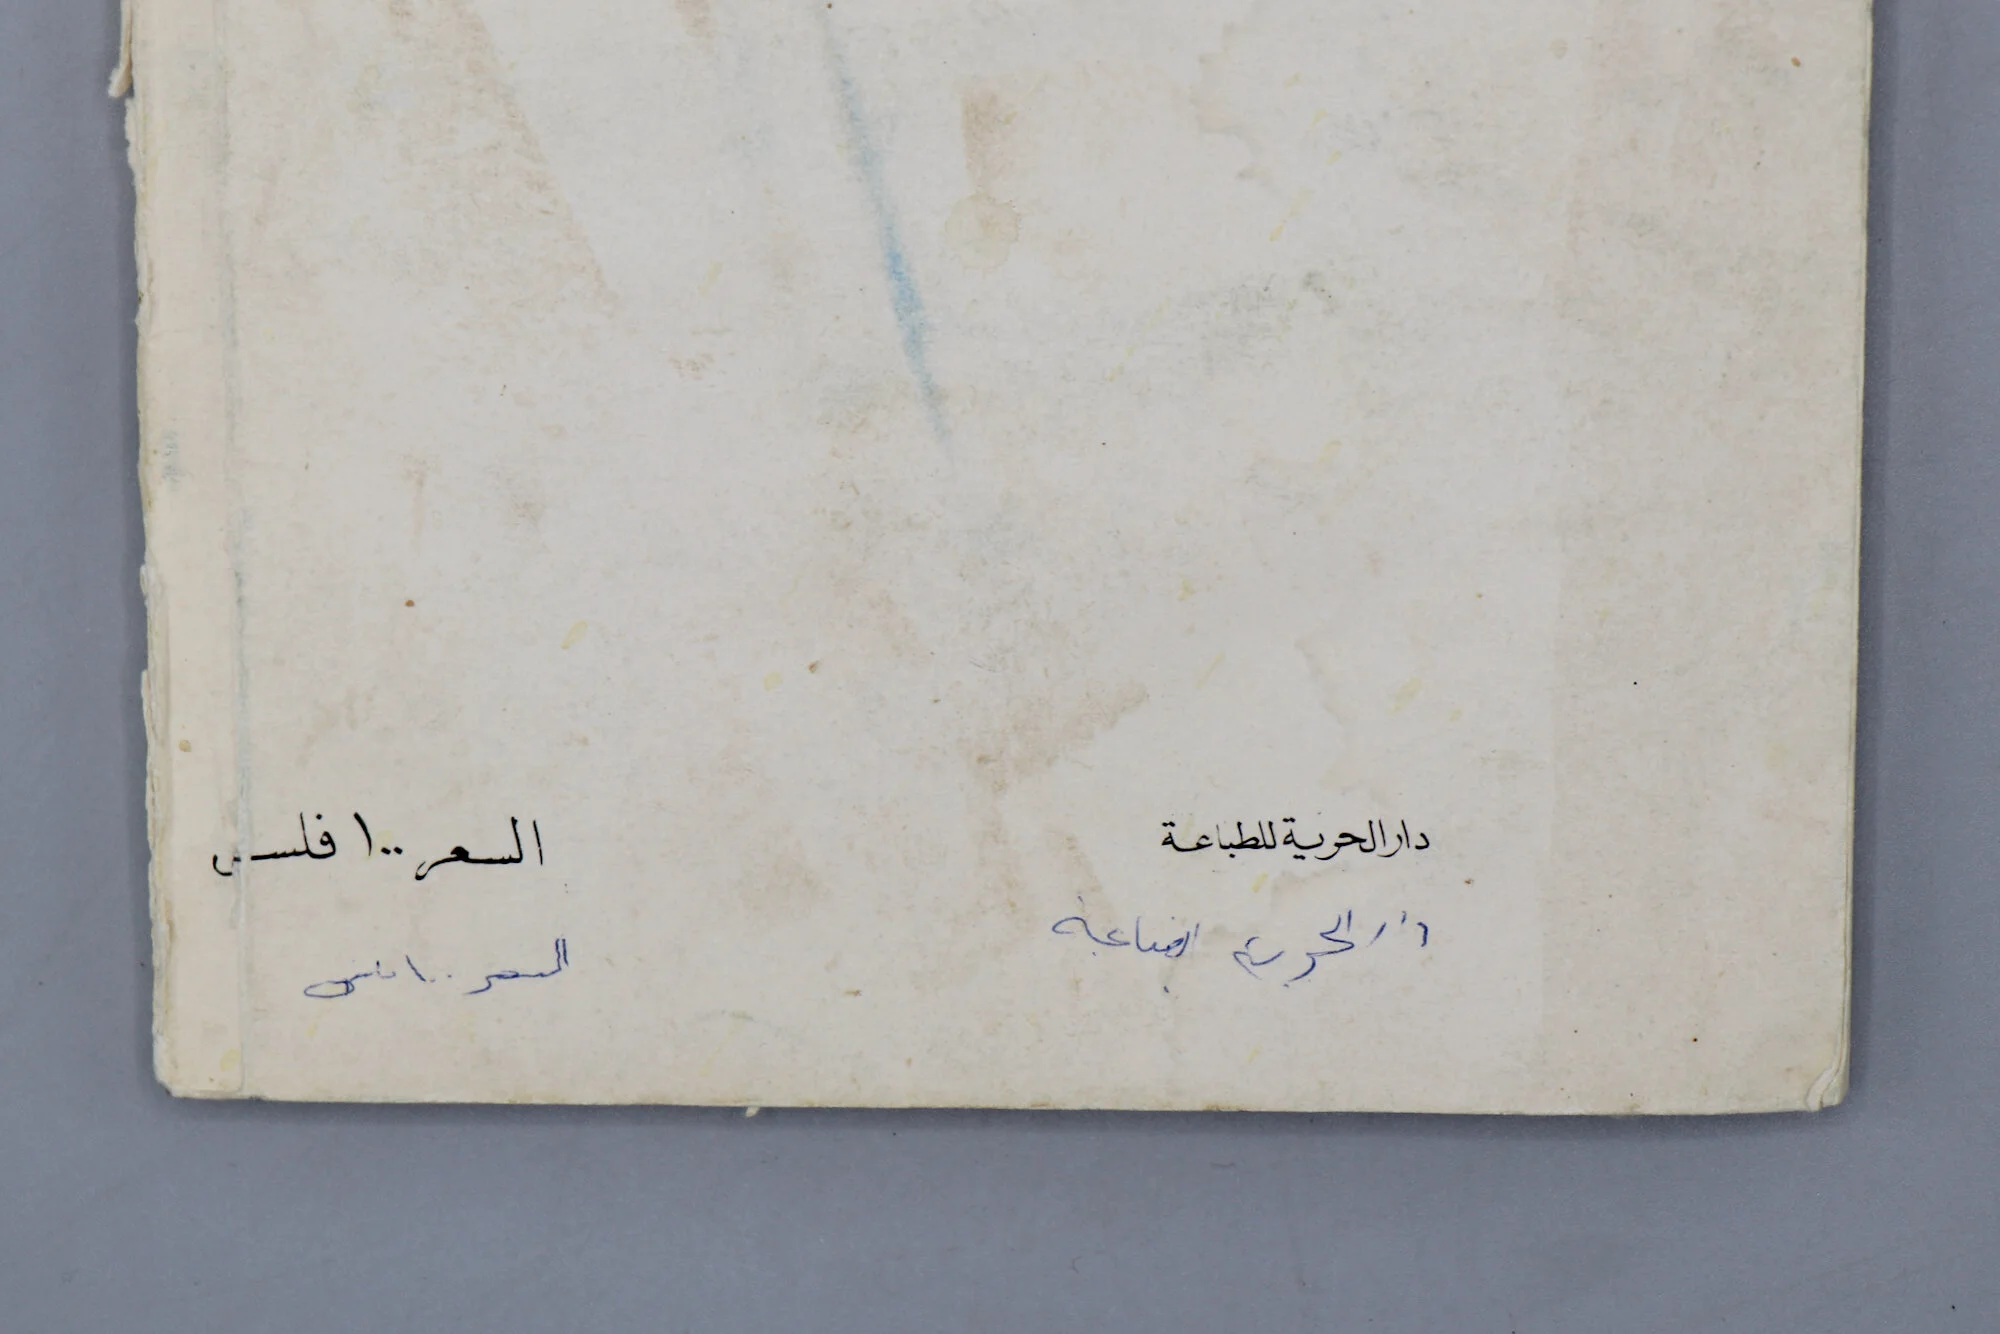 دار الحرية للطباعة
السعر ١٠٠ فلس
دار الحرية
السعر ١٠٠ فلس